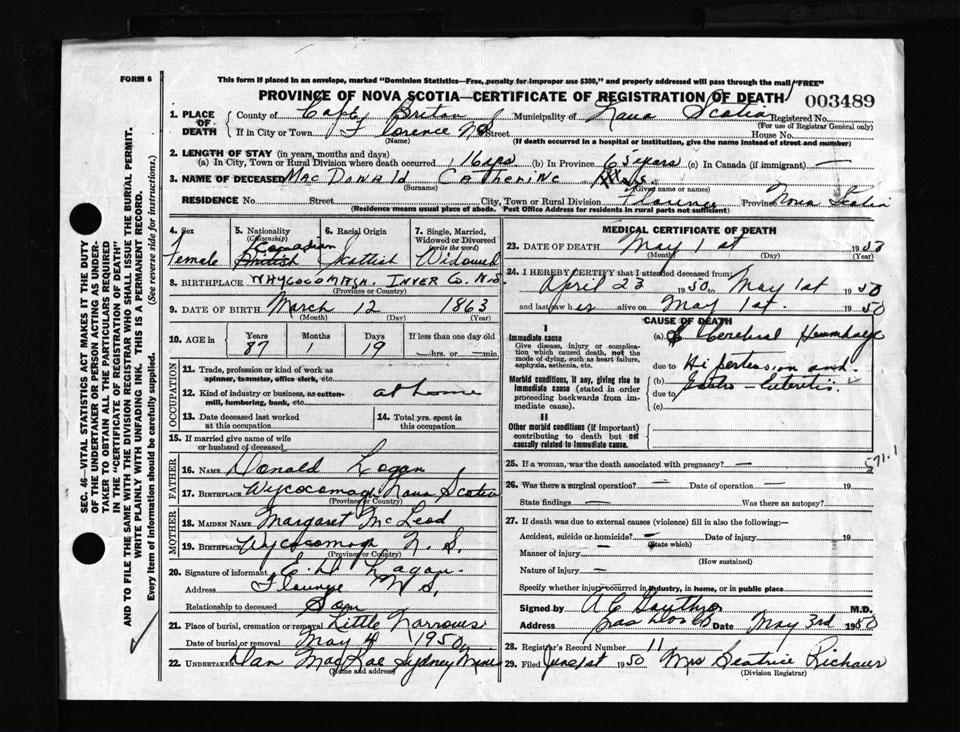 FORM 6
This form if placed in an envelope, marked "Dominion Statistics—Free, penalty for improper use $300," and properly addressed will pass through the mail "FREE"
PROVINCE OF NOVA SCOTIA—CERTIFICATE OF REGISTRATION OF DEATH 003489
1. PLACE OF DEATH
County of Cape Briton Municipality of Nova Scotia Registered No.
(For use of Registrar General only)
If in City or Town Florence NS Street House No.
(Name) (If death occurred in a hospital or institution, give the name instead of street and number)
2. LENGTH OF STAY (in years, months and days)
(a) In City, Town or Rural Division where death occurred 16 yrs (b) In Province 65 years (c) In Canada (if immigrant) —
3. NAME OF DECEASED MacDonald Catherine Mrs.
(Surname) (Given name or names)
RESIDENCE No. Street City, Town or Rural Division Florence Province Nova Scotia
(Residence means usual place of abode. Post Office Address for residents in rural parts not sufficient)
4. Sex
Female
5. Nationality (Citizenship)
Canadian
British
6. Racial Origin
Scottish
7. Single, Married, Widowed or Divorced (write the word)
Widowed
8. BIRTHPLACE WHYCOCOMAGH. INVER CO. N.S.
(Province or Country)
9. DATE OF BIRTH March 12 1863
(Month) (Day) (Year)
10. AGE in Years Months Days If less than one day old
87 1 19 —hrs. or —min.
OCCUPATION
11. Trade, profession or kind of work as spinner, teamster, office clerk, etc.
12. Kind of industry or business, as cotton-mill, lumbering, bank, etc. at home
13. Date deceased last worked at this occupation
14. Total yrs. spent in this occupation
15. If married give name of wife or husband of deceased
FATHER
16. NAME Donald Logan
17. BIRTHPLACE Wycocomagh Nova Scotia
(Province or Country)
MOTHER
18. MAIDEN NAME Margaret McLeod
19. BIRTHPLACE Wycocomogh N. S.
(Province or Country)
20. Signature of informant E. D. Logan
Address Florence N S.
Relationship to deceased Son
21. Place of burial, cremation or removal Little Narrows
Date of burial or removal May 4 1950
22. UNDERTAKER Dan MacRae Sydney Mines
(Name and address)
MEDICAL CERTIFICATE OF DEATH
23. DATE OF DEATH May 1st 1950
(Month) (Day) (Year)
24. I HEREBY CERTIFY that I attended deceased from:
April 23 1950 to May 1st 1950
and last saw her alive on May 1st 1950
CAUSE OF DEATH
I
Immediate cause
Give disease, injury or complication which caused death, not the mode of dying, such as heart failure, asphyxia, asthenia, etc.
(a) Cerebral Hemmhage
due to
Morbid conditions, if any, giving rise to immediate cause (stated in order proceeding backwards from immediate cause).
Hipertension and
(b) Gastro-Enteritis
due to
(c)
II
Other morbid conditions (if important) contributing to death but not causally related to immediate cause.
571.1
25. If a woman, was the death associated with pregnancy? —
26. Was there a surgical operation? — Date of operation — 19
State findings — Was there an autopsy?
27. If death was due to external causes (violence) fill in also the following:—
Accident, suicide or homicide? — Date of injury 19
(State which)
Manner of injury —
(How sustained)
Nature of injury —
Specify whether injury occurred in industry, in home, or in public place
Signed by M.D.
Address Date May 3rd 1950
28. Registrar's Record Number 11
29. Filed June 1st 1950 Mrs Beatrice
(Division Registrar)
SEC. 46—VITAL STATISTICS ACT MAKES IT THE DUTY
OF THE UNDERTAKER OR PERSON ACTING AS UNDER-
TAKER TO OBTAIN ALL THE PARTICULARS REQUIRED
IN THE "CERTIFICATE OF REGISTRATION OF DEATH"
AND TO FILE THE SAME WITH THE DIVISION REGISTRAR WHO SHALL ISSUE THE BURIAL PERMIT.
WRITE PLAINLY WITH UNFADING INK. THIS IS A PERMANENT RECORD.
Every item of information should be carefully supplied. (See reverse side for instructions.)